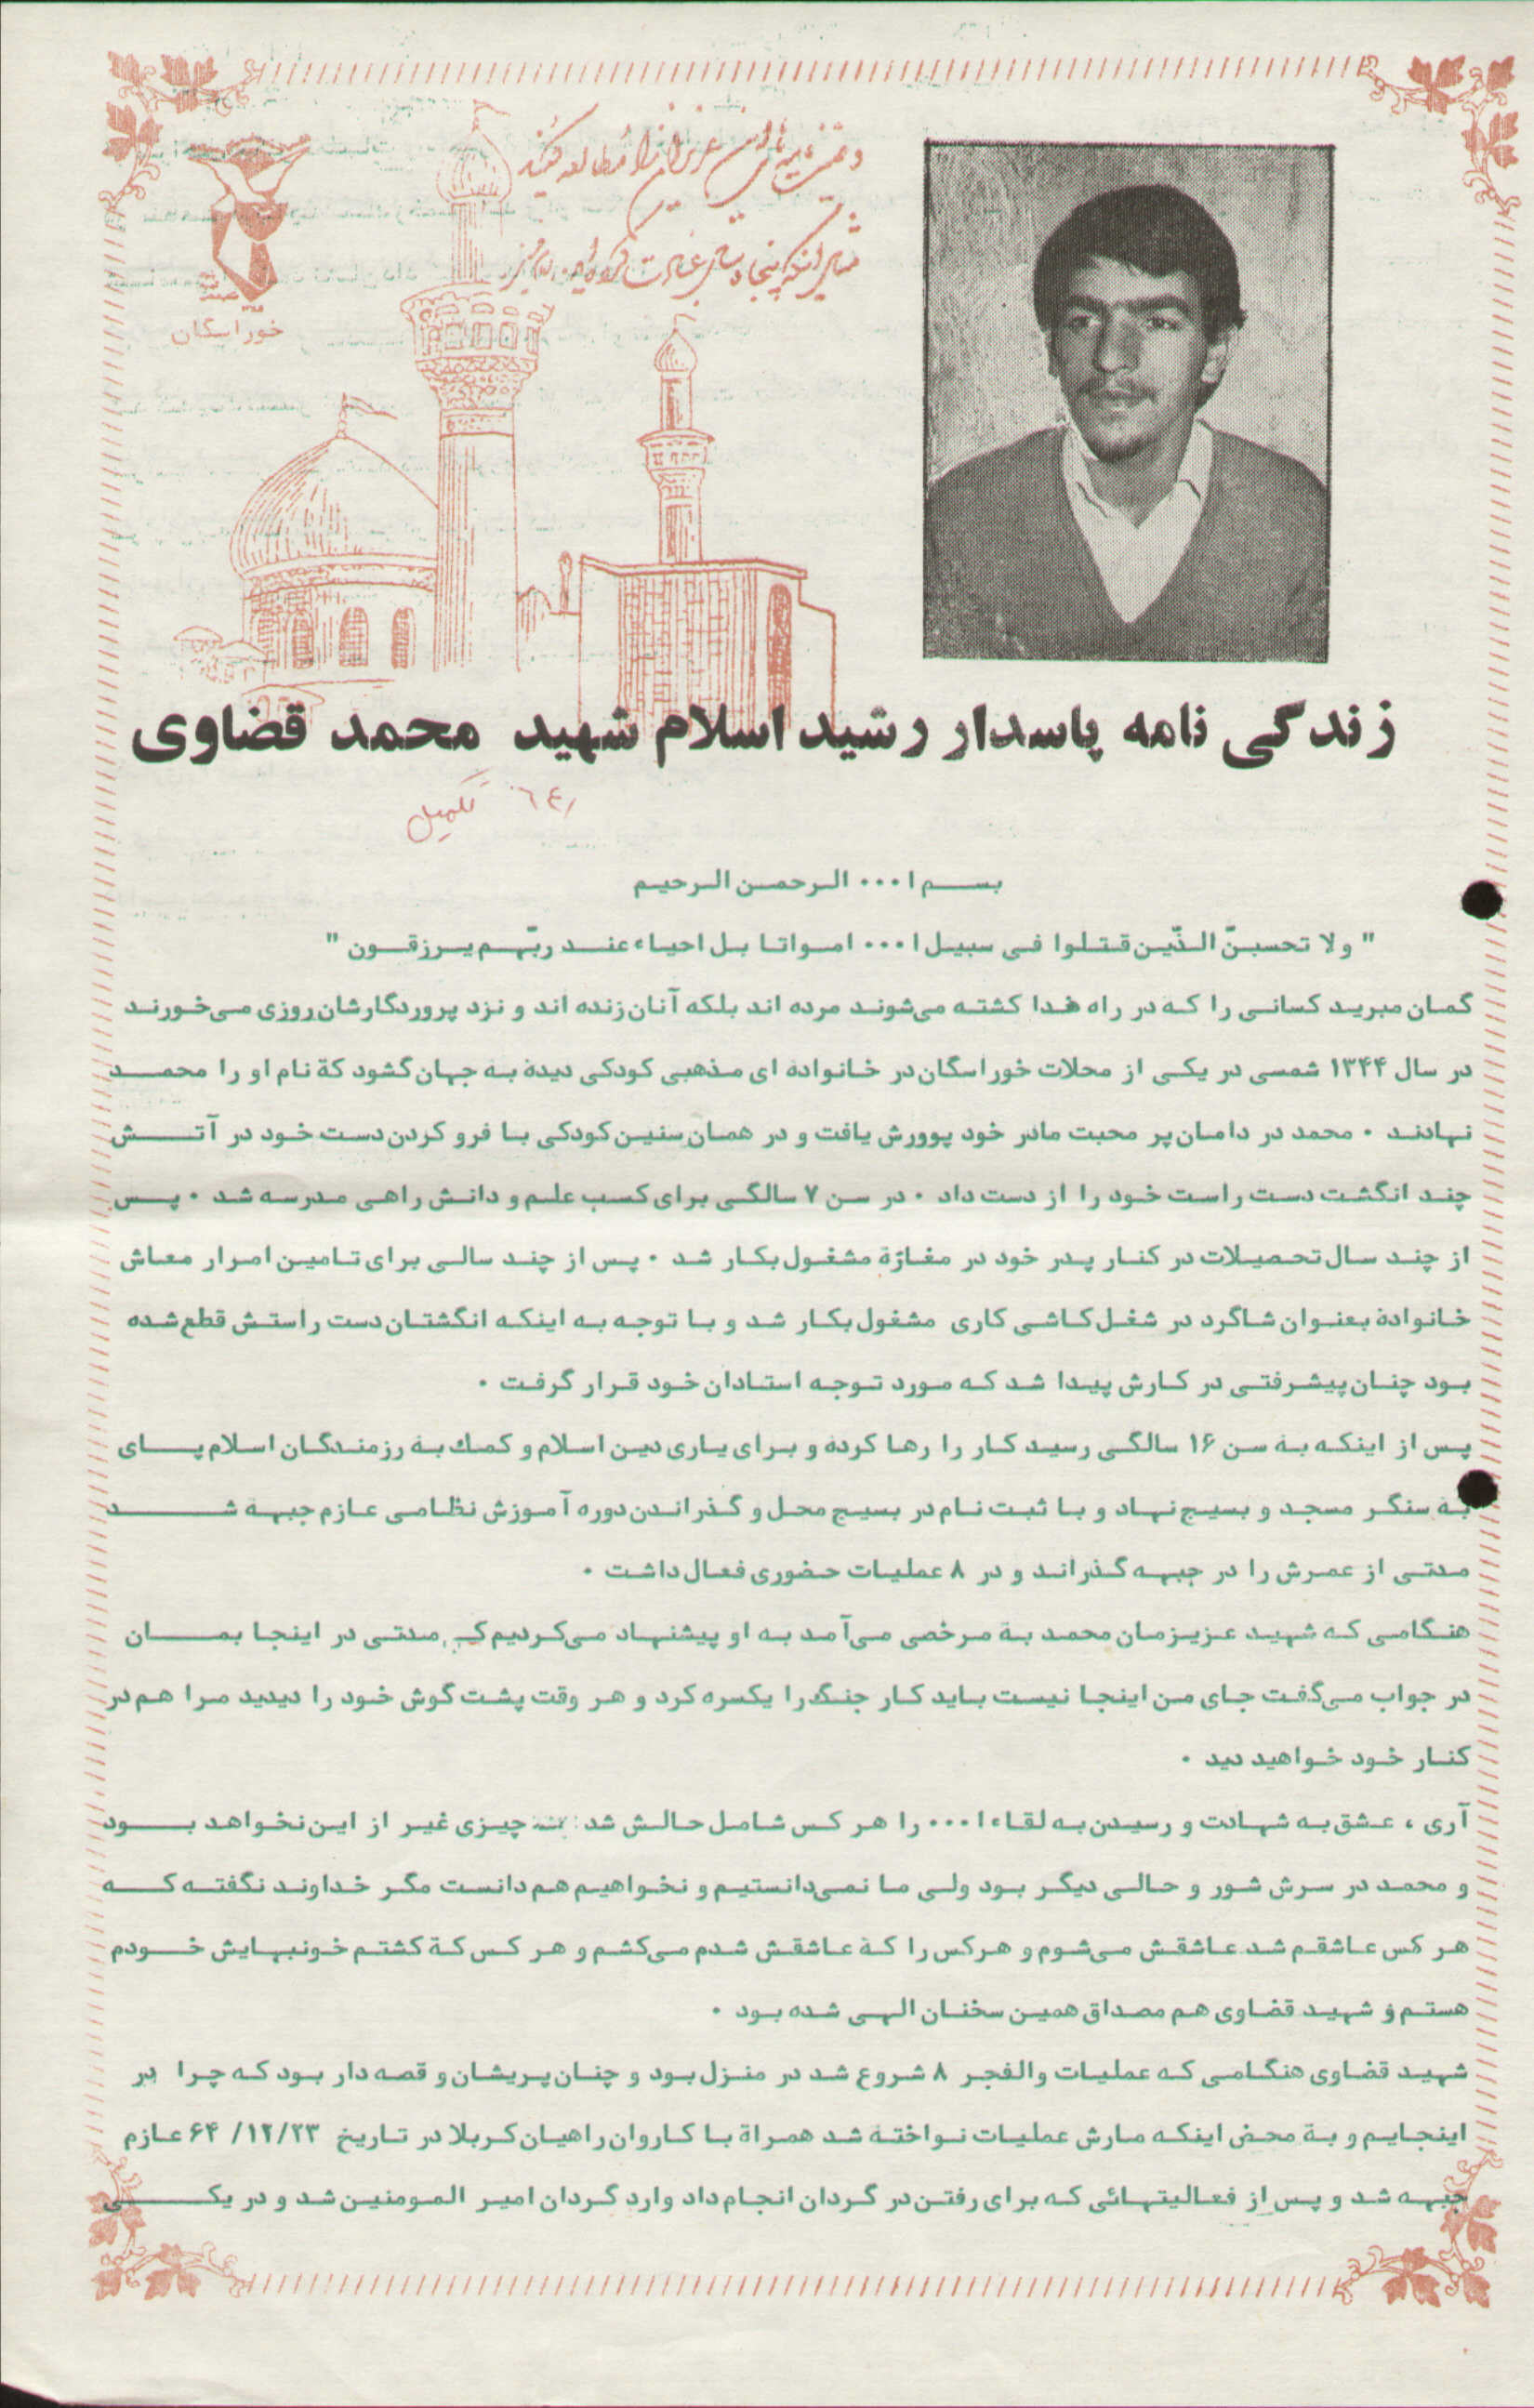 وصیت نامه های این عزیزان را مطالعه کنید
خوراسگان
زندگی نامه پاسدار رشید اسلام شهید محمد قضاوی
تکمیل ٦٤٫
بسم ا... الرحمن الرحیم
" ولا تحسبنّ الذّین قتلوا فی سبیل ا... امواتا بل احیاء عند ربّهم یرزقون "
گمان مبرید کسانی را که در راه خدا کشته می‌شوند مرده اند بلکه آنان زنده اند و نزد پروردگارشان روزی می‌خورند
در سال ۱۳۴۴ شمسی در یکی از محلات خوراسگان در خانواده ای مذهبی کودکی دیده به جهان گشود که نام او را محمد
نهادند . محمد در دامان پر محبت مادر خود پوورش یافت و در همان سنین کودکی با فرو کردن دست خود در آتش
چند انگشت دست راست خود را از دست داد . در سن ۷ سالگی برای کسب علم و دانش راهی مدرسه شد . پس
از چند سال تحصیلات در کنار پدر خود در مغازه مشغول بکار شد . پس از چند سالی برای تامین امرار معاش
خانواده بعنوان شاگرد در شغل کاشی کاری مشغول بکار شد و با توجه به اینکه انگشتان دست راستش قطع شده
بود چنان پیشرفتی در کارش پیدا شد که مورد توجه استادان خود قرار گرفت .
پس از اینکه به سن ۱۶ سالگی رسید کار را رها کرده و برای یاری دین اسلام و کمک به رزمندگان اسلام پای
به سنگر مسجد و بسیج نهاد و با ثبت نام در بسیج محل و گذراندن دوره آموزش نظامی عازم جبهه شد
مدتی از عمرش را در جبهه گذراند و در ۸ عملیات حضوری فعال داشت .
هنگامی که شهید عزیزمان محمد به مرخصی می‌آمد به او پیشنهاد می‌کردیم که مدتی در اینجا بمان
در جواب می‌گفت جای من اینجا نیست باید کار جنگ را یکسره کرد و هر وقت پشت گوش خود را دیدید مرا هم در
کنار خود خواهید دید .
آری ، عشق به شهادت و رسیدن به لقاء ا... را هر کس شامل حالش شد چیزی غیر از این نخواهد بود
و محمد در سرش شور و حالی دیگر بود ولی ما نمی‌دانستیم و نخواهیم هم دانست مگر خداوند نگفته که
هر کس عاشقم شد عاشقش می‌شوم و هرکس را که عاشقش شدم می‌کشم و هر کس که کشتم خونبهایش خودم
هستم و شهید قضاوی هم مصداق همین سخنان الهی شده بود .
شهید قضاوی هنگامی که عملیات والفجر ۸ شروع شد در منزل بود و چنان پریشان و قصه دار بود که چرا در
اینجایم و به محض اینکه مارش عملیات نواخته شد همراه با کاروان راهیان کربلا در تاریخ ۶۴/۱۲/۲۳ عازم
جبهه شد و پس از فعالیتهائی که برای رفتن در گردان انجام داد وارد گردان امیر المومنین شد و در یکی